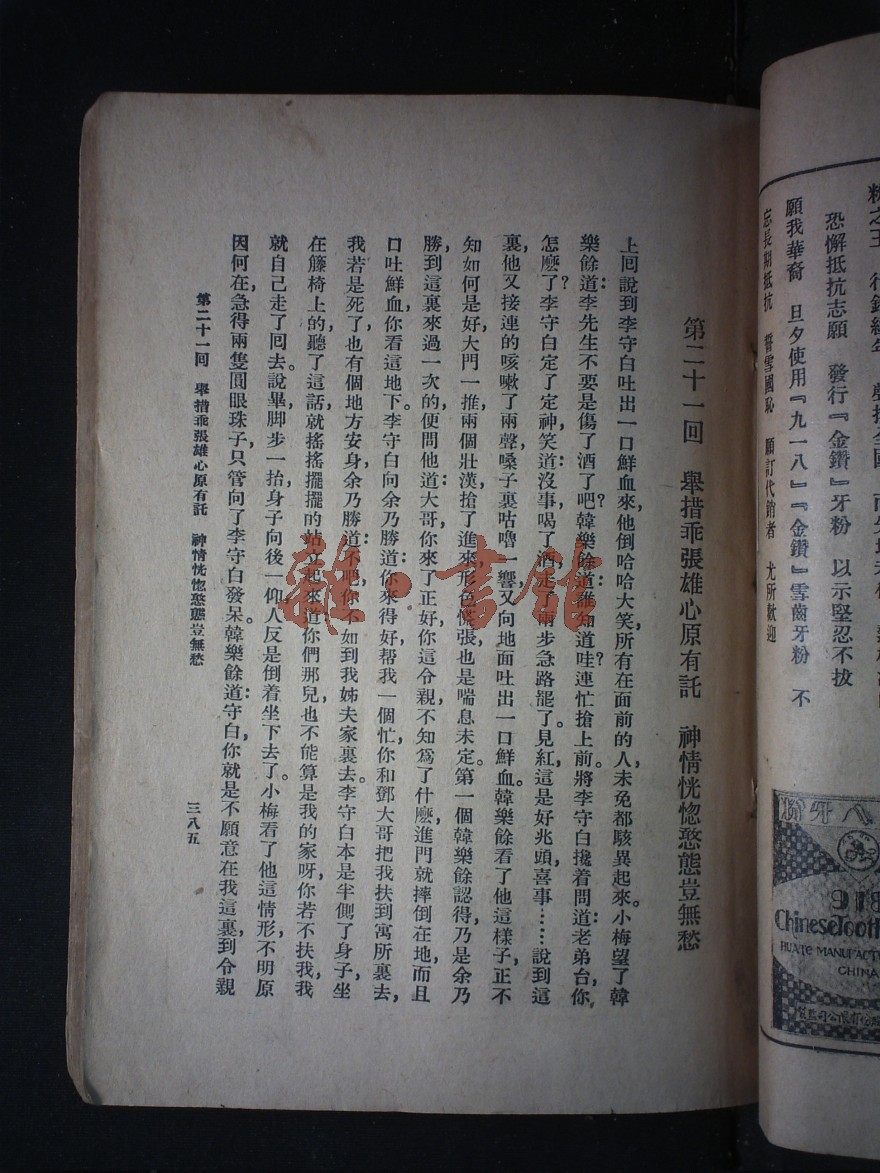 第二十一回　舉措乖張雄心原有託　神情恍惚憨態豈無愁
上囘說到李守白吐出一口鮮血來，他倒哈哈大笑，所有在面前的人，未免都駭異起來。小梅望了韓
樂餘道：李先生不要是傷了酒了吧？韓樂餘道：誰知道哇？連忙搶上前，將李守白攙着問道：老弟台，你
怎麽了？李守白定了定神，笑道：沒事，喝了酒，走了兩步急路罷了。見紅，這是好兆頭，喜事……說到這
裏，他又接連的咳嗽了兩聲，嗓子裏咕嚕一響，又向地面吐出一口鮮血。韓樂餘看了他這樣子，正不
知如何是好，大門一推，兩個壯漢，搶了進來，形色慌張，也是喘息未定。第一個韓樂餘認得，乃是余乃
勝，到這裏來過一次的，便問他道：大哥，你來了正好，你這令親，不知爲了什麽，進門就摔倒在地，而且
口吐鮮血，你看這地下。李守白向余乃勝道：你來得好，帮我一個忙，你和鄧大哥把我扶到寓所裏去，
我若是死了，也有個地方安身。余乃勝道：不吧，你不如到我姊夫家裏去。李守白本是半側了身子，坐
在籐椅上的，聽了這話，就搖搖擺擺的站立起來道：你們那兒也不能算是我的家呀，你若不扶我，我
就自己走了囘去。說畢，脚步一抬，身子向後一仰，人反是倒着坐下去了。小梅看了他這情形，不明原
因何在，急得兩隻圓眼珠子，只管向了李守白發呆。韓樂餘道：守白，你就是不願意在我這裏，到令親
第二十一回　舉措乖張雄心原有託　神情恍惚憨態豈無愁
三八五
恐懈抵抗志願　發行『金鑽』牙粉　以示堅忍不拔
願我華裔　旦夕使用『九一八』『金鑽』雪齒牙粉　不
忘長期抵抗　誓雪國恥　願訂代銷者　尤所歡迎
918
CHINA
雜·書館